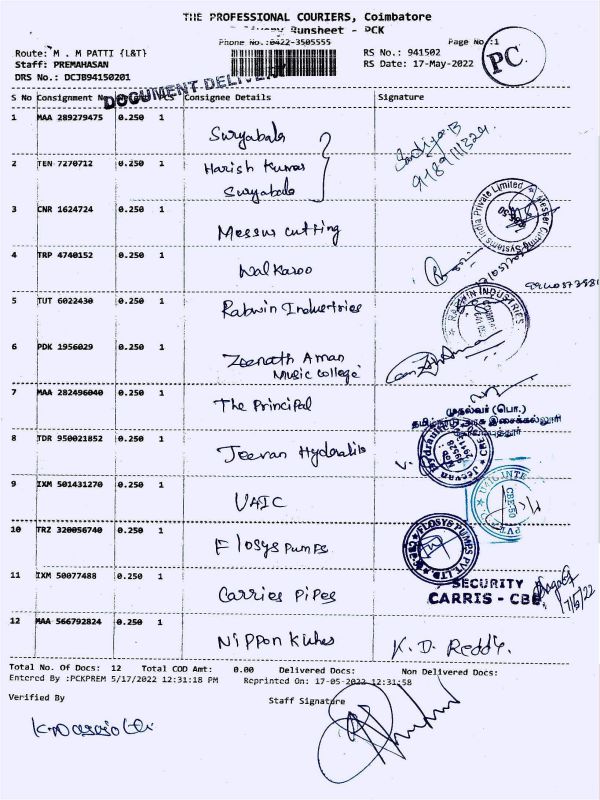 THE PROFESSIONAL COURIERS, Coimbatore
Delivery Runsheet - PCK
Phone No.:0422-3505555 Page No :1
PC
Route: M . M PATTI {L&T} RS No.: 941502
Staff: PREMAHASAN RS Date: 17-May-2022
DRS No.: DCJB94150201
DOCUMENT DELIVERY
S No Consignment No PCS Consignee Details Signature
1 MAA 289279475 0.250 1 Suryabala
Sandiya.B
2 TEN 7270712 0.250 1 Harish Kumar
Suryabala
3 CNR 1624724 0.250 1 Messus cutting
Messer Cutting Systems India Private Limited
4 TRP 4740152 0.250 1 Walkaroo
5 TUT 6022430 0.250 1 Rabwin Industries
RABWIN INDUSTRIES
6 PDK 1956029 0.250 1 Zeenath Aman
Music college
7 MAA 282496040 0.250 1 The Principal
முதல்வர் (பொ.)
தமிழ்நாடு அரசு இசைக்கல்லூரி
8 TDR 950021852 0.250 1 Jeevan Hydraulik
Jeevan Hydraulik
9 IXM 501431270 0.250 1 UAIC
CBE-50
10 TRZ 320056740 0.250 1 Flosys Pumps
FLOSYS PUMPS PVT. LTD.
11 IXM 50077488 0.250 1 Carries Pipes
SECURITY
CARRIS - CBE
17/5/22
12 MAA 566792824 0.250 1 Nippon Kuhes
K. D. Reddy.
Total No. Of Docs: 12 Total COD Amt: 0.00 Delivered Docs: Non Delivered Docs:
Entered By :PCKPREM 5/17/2022 12:31:18 PM Reprinted On: 17-05-2022 12:31:58
Verified By Staff Signature